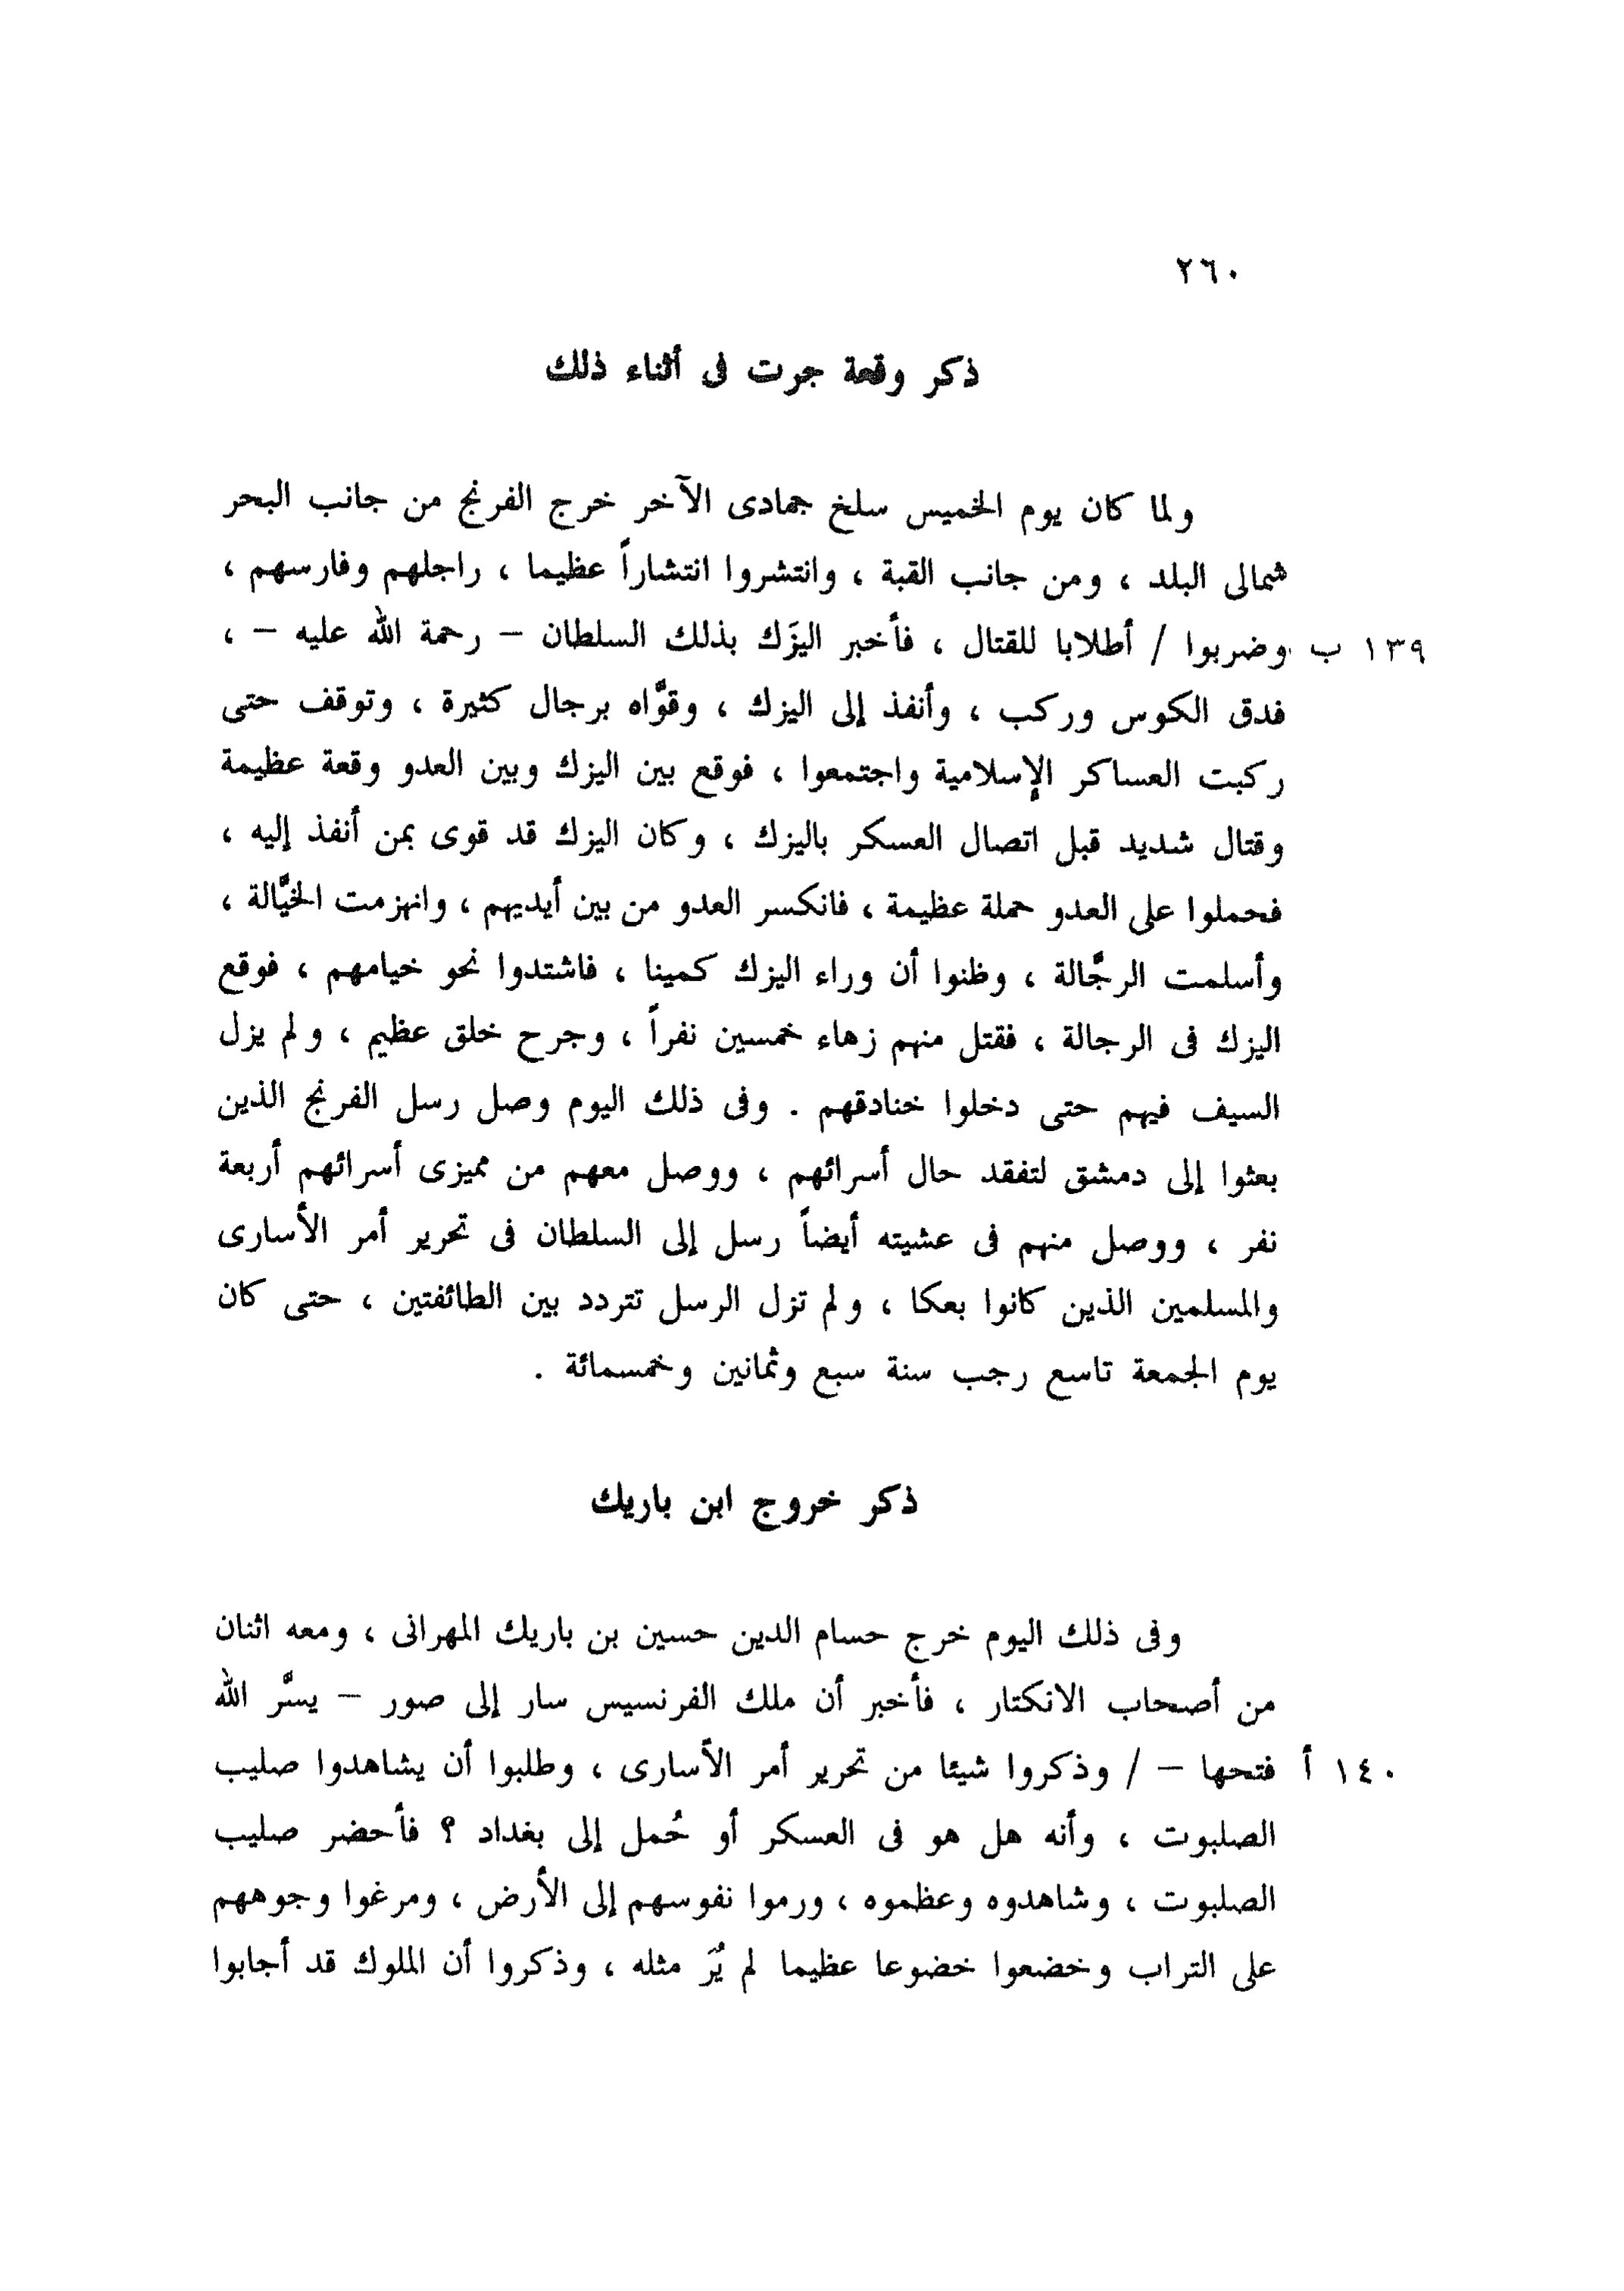 ٢٦٠
ذكر وقعة جرت فى أثناء ذلك
ولما كان يوم الخميس سلخ جمادى الآخر خرج الفرنج من جانب البحر
شمالى البلد ، ومن جانب القبة ، وانتشروا انتشاراً عظيما ، راجلهم وفارسهم ،
١٣٩ ب وضربوا / أطلابا للقتال ، فأخبر اليزَك بذلك السلطان – رحمة الله عليه – ،
فدق الكوس وركب ، وأنفذ إلى اليزك ، وقوَّاه برجال كثيرة ، وتوقف حتى
ركبت العساكر الإسلامية واجتمعوا ، فوقع بين اليزك وبين العدو وقعة عظيمة
وقتال شديد قبل اتصال العسكر باليزك ، وكان اليزك قد قوى بمن أنفذ إليه ،
فحملوا على العدو حملة عظيمة ، فانكسر العدو من بين أيديهم ، وانهزمت الخيَّالة ،
وأسلمت الرجَّالة ، وظنوا أن وراء اليزك كمينا ، فاشتدوا نحو خيامهم ، فوقع
اليزك فى الرجالة ، فقتل منهم زهاء خمسين نفراً ، وجرح خلق عظيم ، ولم يزل
السيف فيهم حتى دخلوا خنادقهم . وفى ذلك اليوم وصل رسل الفرنج الذين
بعثوا إلى دمشق لتفقد حال أسرائهم ، ووصل معهم من مميزى أسرائهم أربعة
نفر ، ووصل منهم فى عشيته أيضاً رسل إلى السلطان فى تحرير أمر الأسارى
والمسلمين الذين كانوا بعكا ، ولم تزل الرسل تتردد بين الطائفتين ، حتى كان
يوم الجمعة تاسع رجب سنة سبع وثمانين وخمسمائة .
ذكر خروج ابن باريك
وفى ذلك اليوم خرج حسام الدين حسين بن باريك المهرانى ، ومعه اثنان
من أصحاب الانكتار ، فأخبر أن ملك الفرنسيس سار إلى صور – يسَّر الله
١٤٠ أ فتحها – / وذكروا شيئا من تحرير أمر الأسارى ، وطلبوا أن يشاهدوا صليب
الصلبوت ، وأنه هل هو فى العسكر أو حُمل إلى بغداد ؟ فأحضر صليب
الصلبوت ، وشاهدوه وعظموه ، ورموا نفوسهم إلى الأرض ، ومرغوا وجوههم
على التراب وخضعوا خضوعا عظيما لم يُرَ مثله ، وذكروا أن الملوك قد أجابوا